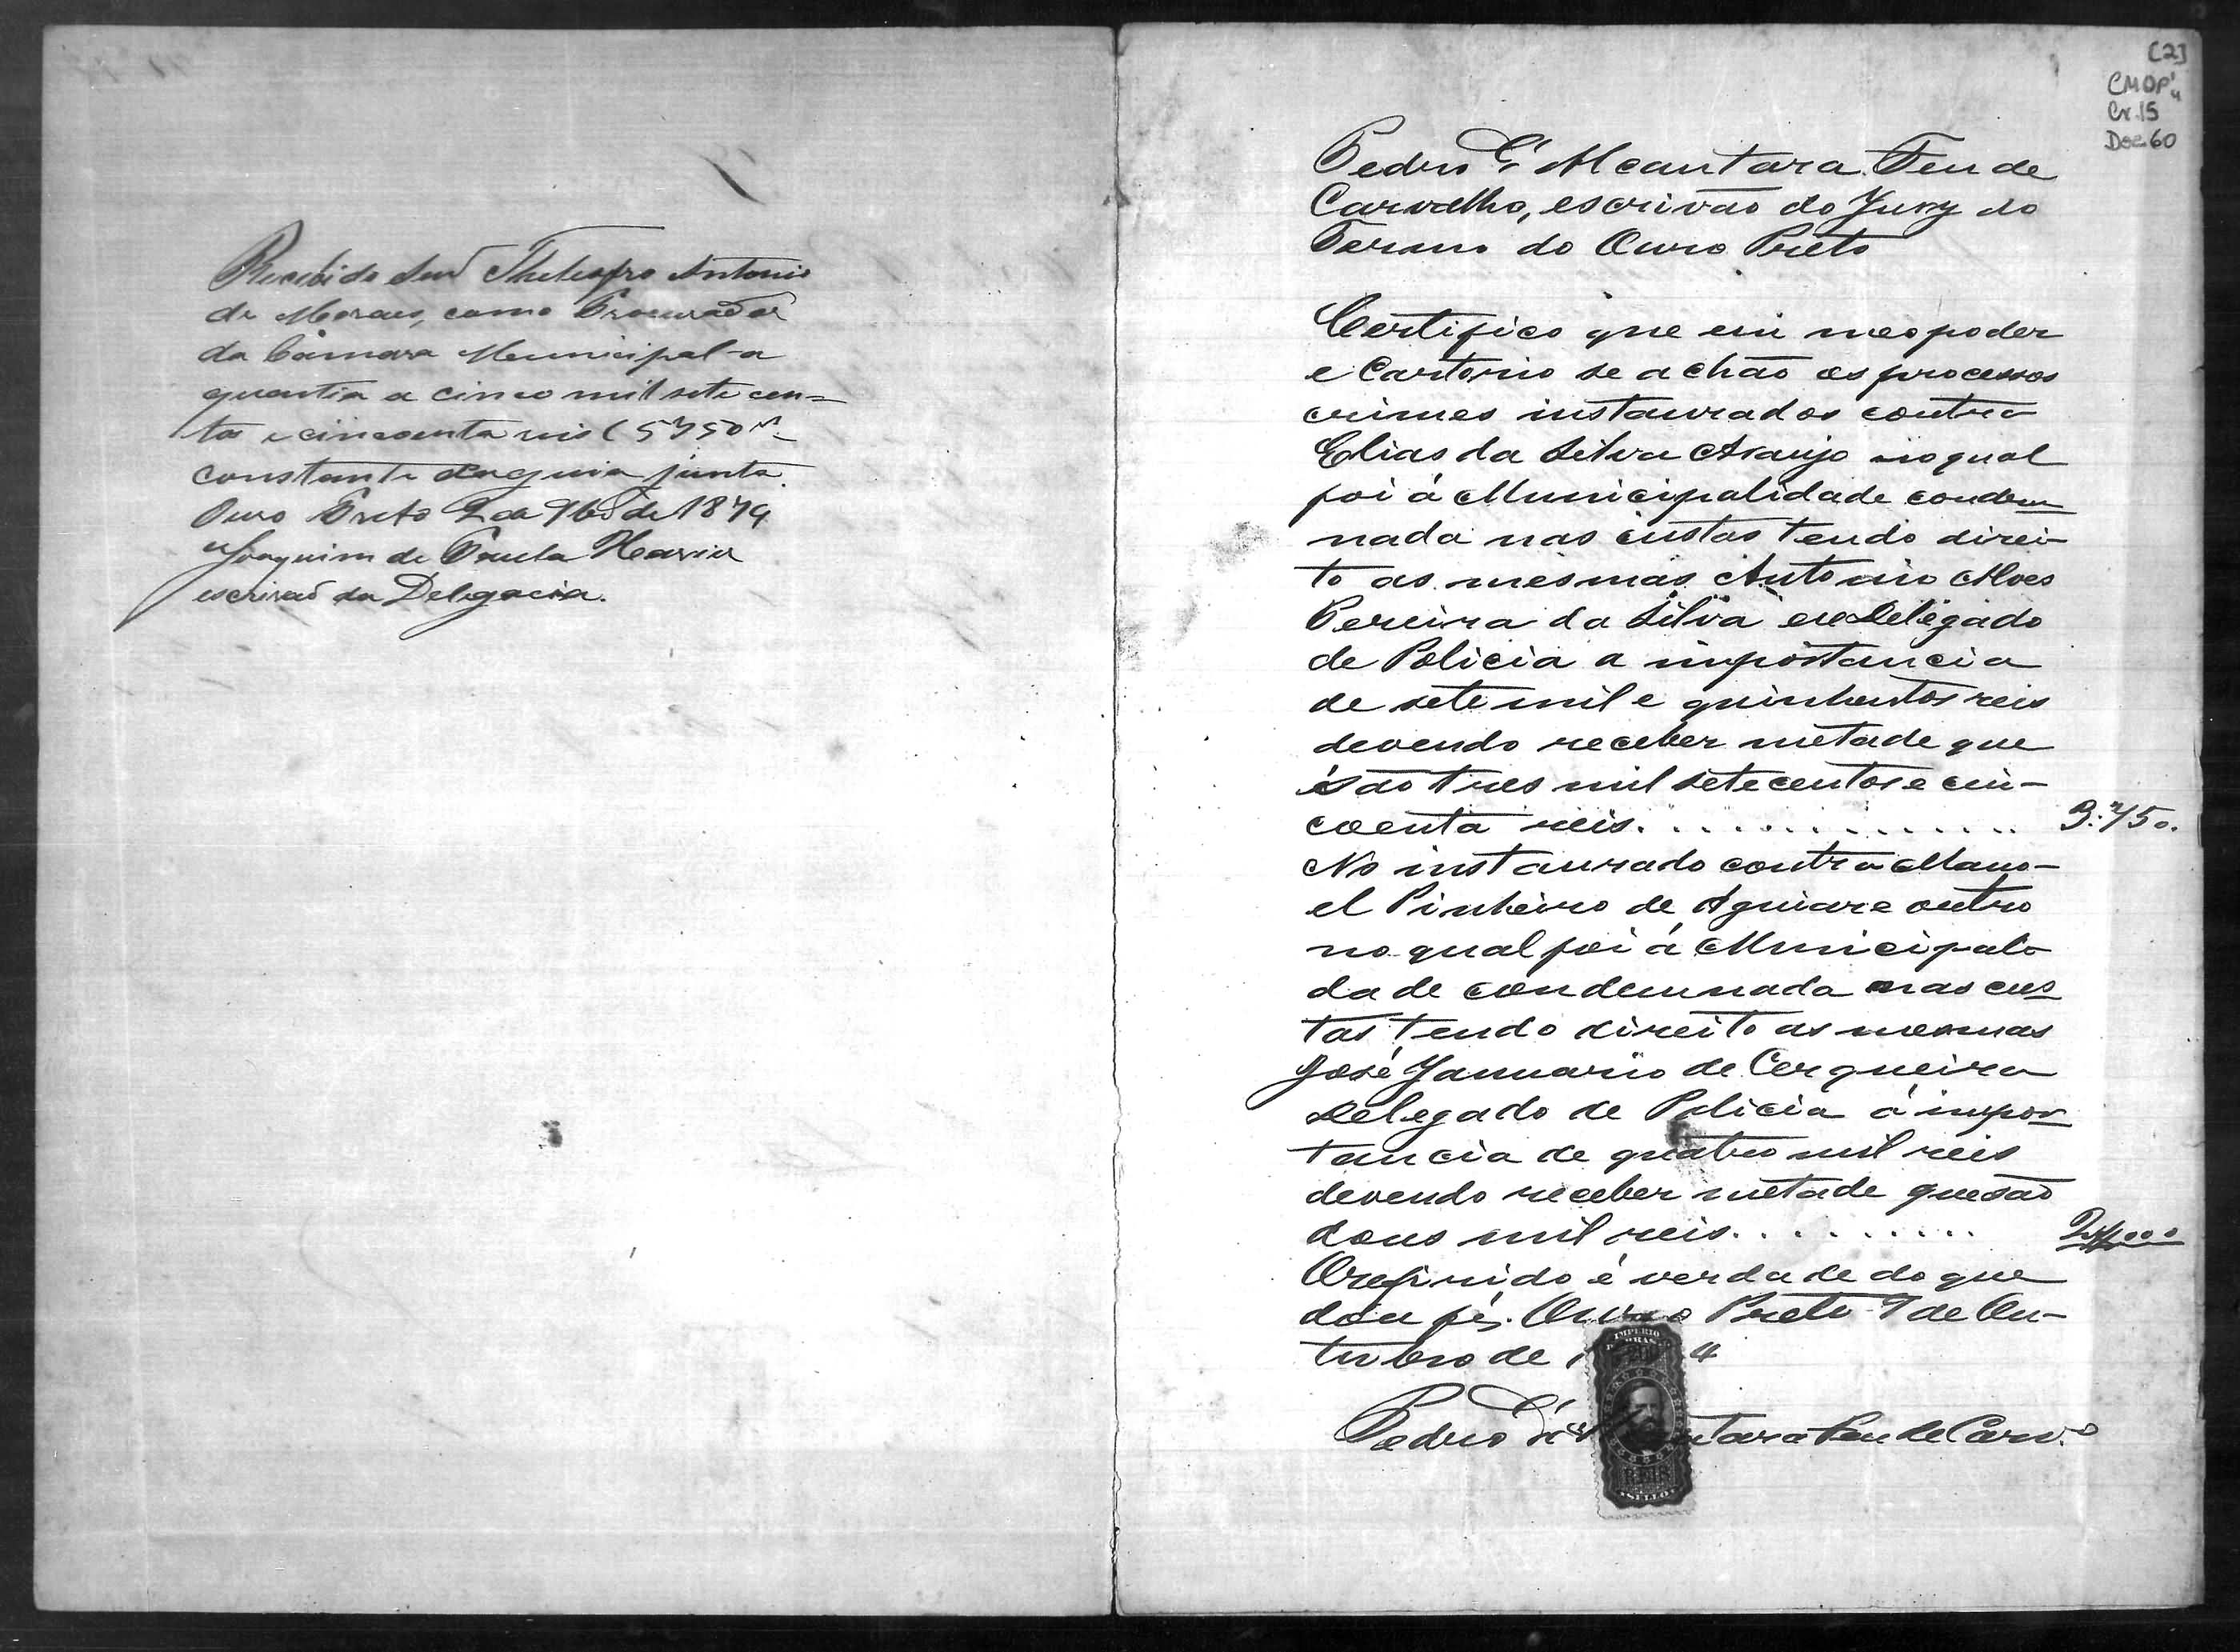 Recebi do Snr Theleofro Antonio
de Moraes, como Procurador
da Camara Municipal a
quantia a cinco mil sete cen=
tos e cincoenta reis (5750 rs
constante da guia junta.
Ouro Preto 2 de 9bro de 1874
Joaquim de Paula
escrivaõ da Delegacia.
[2]
CMOP
Cx.15
Doc 60
Pedro d' Alcantara Feu de
Carvalho, escrivão do Jury do
Termo do Ouro Preto
Certifico que em meo poder
e Cartorio se achão os processos
crimes instaurados contra
Elias da Silva Araujo no qual
foi á Municipalidade condem
nada nas custas tendo direi-
to as mesmas Antonio Alves
Pereira da Silva ex Delegado
de Policia a importancia
de sete mil e quinhentos reis
devendo receber metade que
são tres mil setecentos e cin-
coenta reis. . . . . . . . . . . . . . 3:750.
No instaurado contra Mano-
el Pinheiro de Aguiar e outro
no qual foi á Municipali
dade condemnada nas cus
tas tendo direito as mesmas
José Januario de Cerqueira
Delegado de Policia á impor
tancia de quatro mil reis
devendo receber metade que são
dous mil reis. . . . . . . . . 2$000
O referido é verdade do que
dou fé. Ouro Preto 7 de Ou-
tubro de 1 4
IMPERIO
200
Pedro d'Alcantara Feu de Carv.o
REIS
SELLO